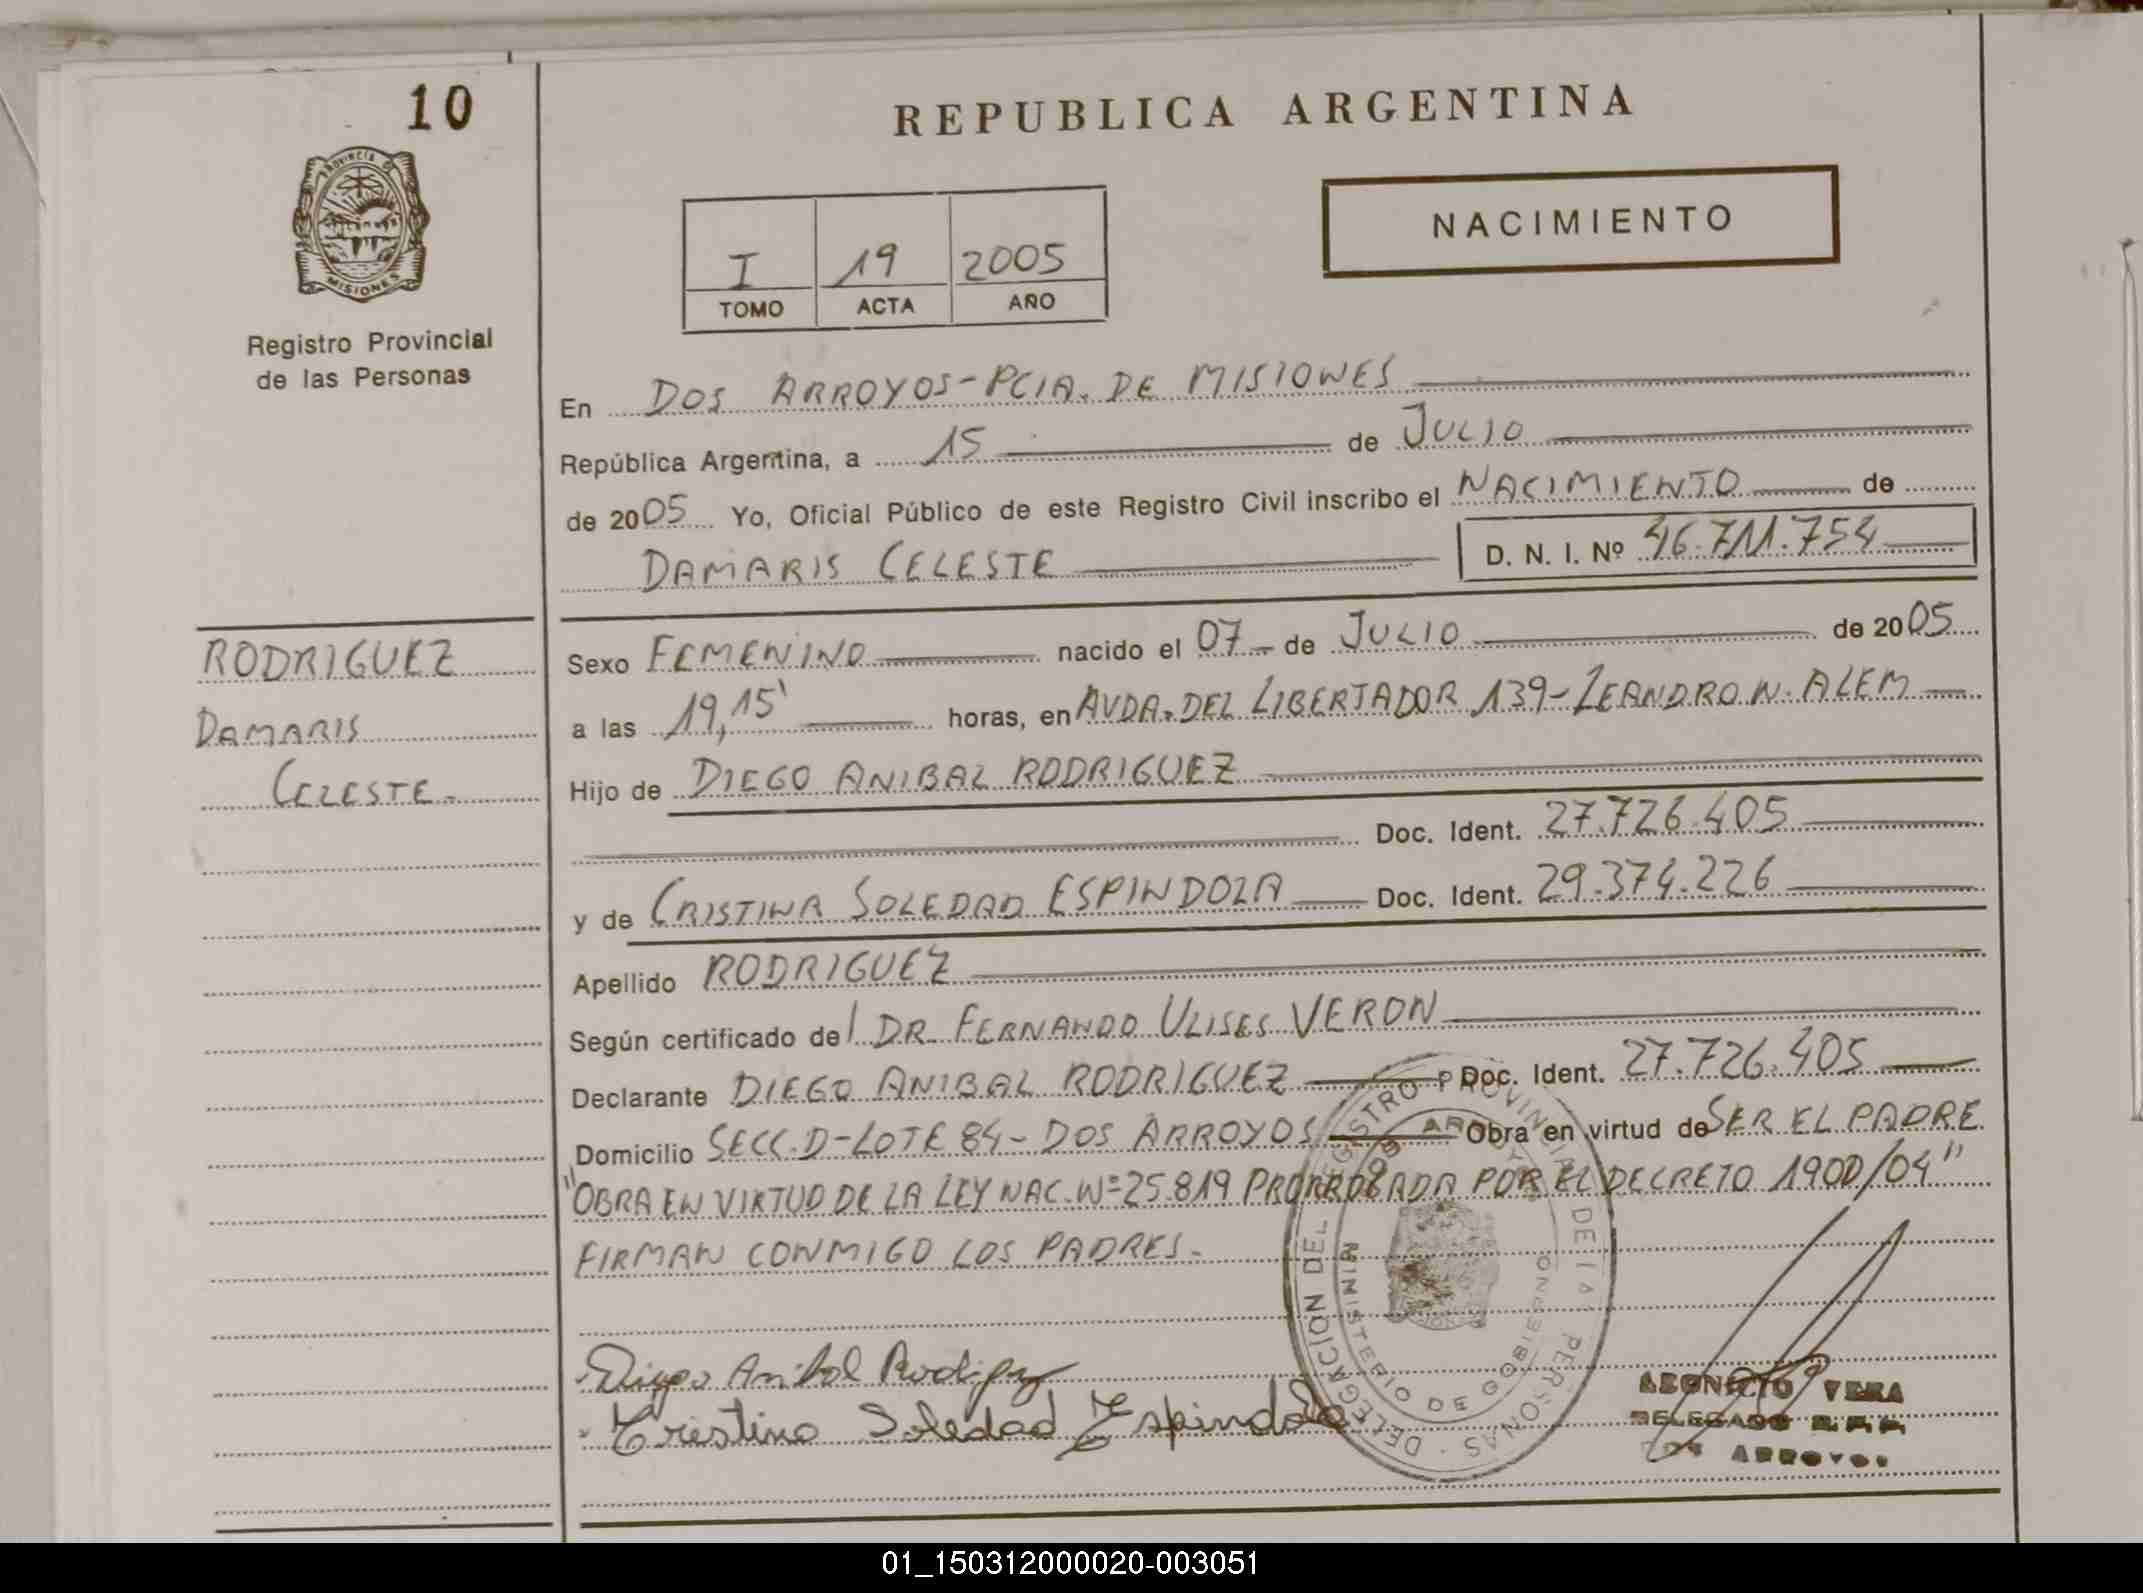 10
REPUBLICA ARGENTINA
PROVINCIA DE
MISIONES
Registro Provincial
de las Personas
NACIMIENTO
I 19 2005
TOMO ACTA AÑO
En DOS ARROYOS-PCIA. DE MISIONES
República Argentina, a 15 de JULIO
de 2005 Yo, Oficial Público de este Registro Civil inscribo el NACIMIENTO de
DAMARIS CELESTE D. N. I. Nº 46.711.754
RODRIGUEZ
DAMARIS
CELESTE-
Sexo FEMENINO nacido el 07 de JULIO de 2005
a las 19,15' horas, en AVDA. DEL LIBERTADOR 139-LEANDRO N. ALEM
Hijo de DIEGO ANIBAL RODRIGUEZ
Doc. Ident. 27.726.405
y de CRISTINA SOLEDAD ESPINDOLA Doc. Ident. 29.374.226
Apellido RODRIGUEZ
Según certificado del DR. FERNANDO ULISES VERON
Declarante DIEGO ANIBAL RODRIGUEZ Doc. Ident. 27.726.405
Domicilio SECC.D-LOTE 84-DOS ARROYOS Obra en virtud de SER EL PADRE
"OBRA EN VIRTUD DE LA LEY NAC. Nº 25.819 PRORROGADA POR EL DECRETO 1900/04"
FIRMAN CONMIGO LOS PADRES.
DELEGACION DEL REGISTRO PROVINCIAL DE LAS PERSONAS
DOS ARROYOS
MINISTERIO DE GOBIERNO
Diego Anibal Rodriguez
Cristina Soledad Espindola
VERA
DELEGADO R.P.P.
DOS ARROYOS
01_150312000020-003051